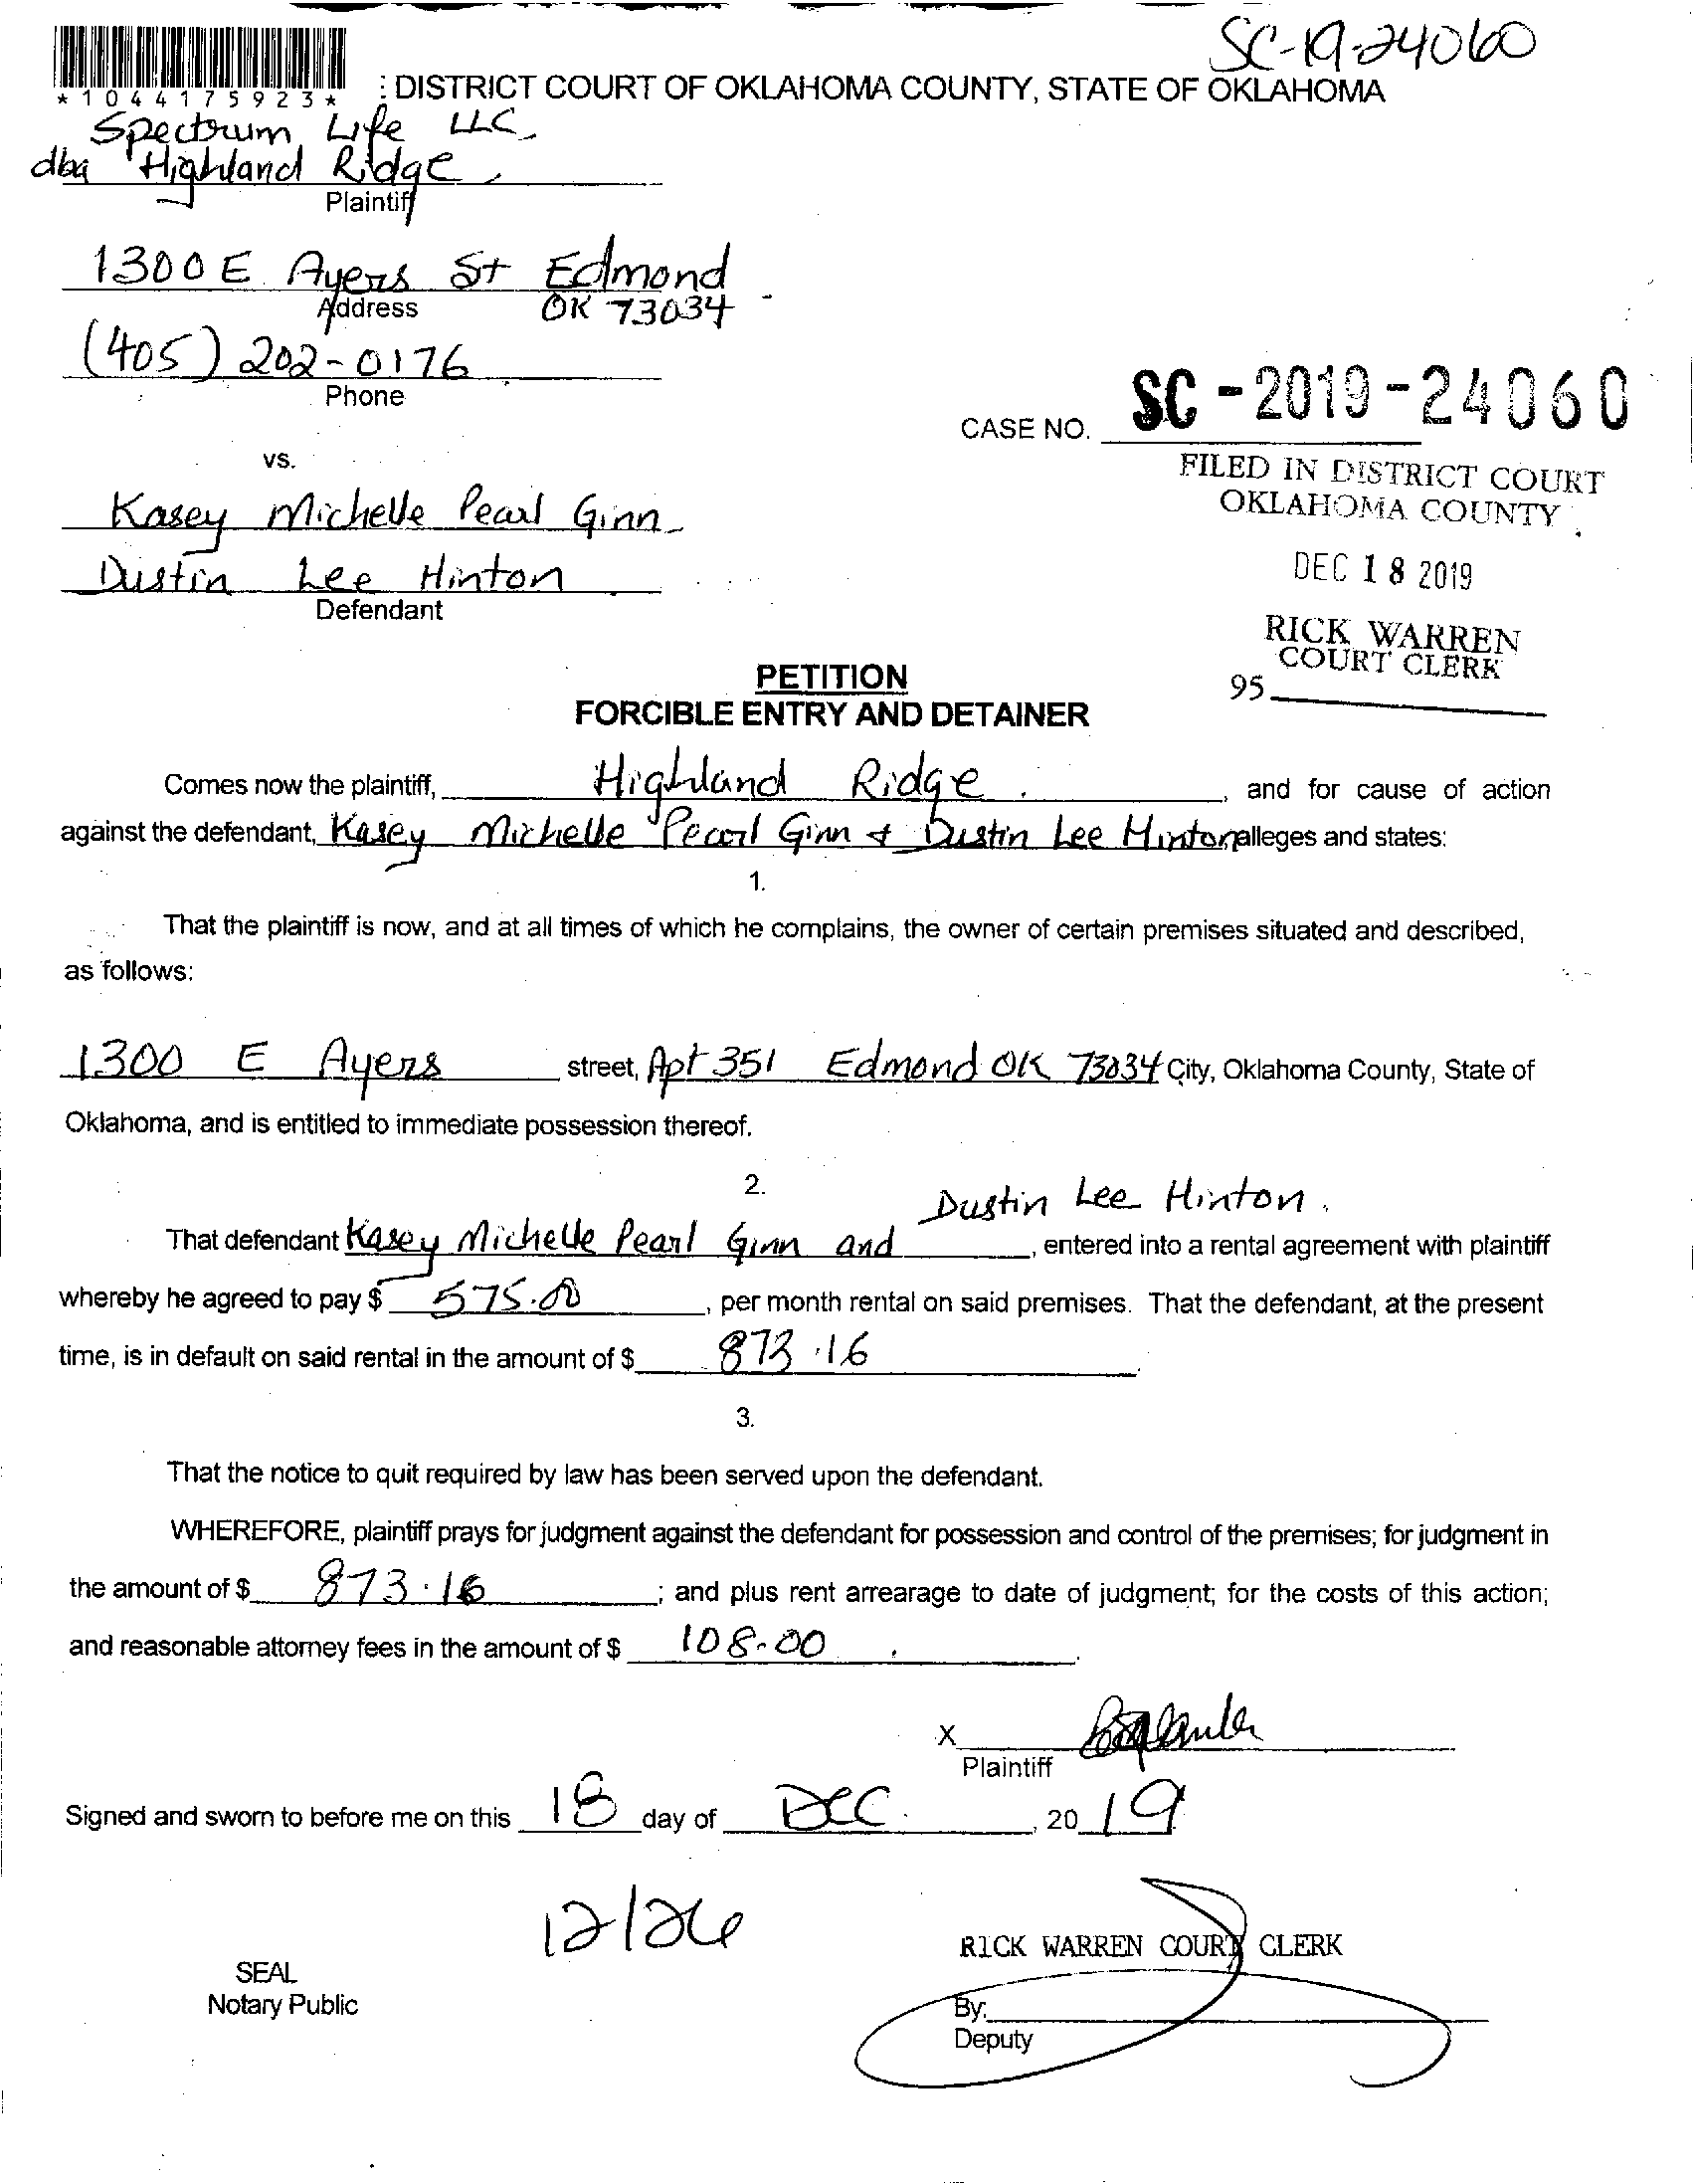 SC-19-24060
*1044175923*
: DISTRICT COURT OF OKLAHOMA COUNTY, STATE OF OKLAHOMA
Spectrum Life LLC
dba Highland Ridge
Plaintiff
1300 E. Ayers St Edmond
Address OK 73034
(405) 202-0176
Phone
CASE NO. SC-2019-24060
vs.
FILED IN DISTRICT COURT
OKLAHOMA COUNTY
Kasey Michelle Pearl Ginn
Dustin Lee Hinton
Defendant
DEC 18 2019
RICK WARREN
COURT CLERK
95
PETITION
FORCIBLE ENTRY AND DETAINER
Comes now the plaintiff, Highland Ridge, and for cause of action
against the defendant, Kasey Michelle Pearl Ginn + Dustin Lee Hinton alleges and states:
1.
That the plaintiff is now, and at all times of which he complains, the owner of certain premises situated and described,
as follows:
1300 E Ayers street, Apt 351 Edmond OK 73034 City, Oklahoma County, State of
Oklahoma, and is entitled to immediate possession thereof.
2.
Dustin Lee Hinton.
That defendant Kasey Michelle Pearl Ginn and, entered into a rental agreement with plaintiff
whereby he agreed to pay $ 575.00, per month rental on said premises. That the defendant, at the present
time, is in default on said rental in the amount of $ 873.16.
3.
That the notice to quit required by law has been served upon the defendant.
WHEREFORE, plaintiff prays for judgment against the defendant for possession and control of the premises; for judgment in
the amount of $ 873.16; and plus rent arrearage to date of judgment; for the costs of this action;
and reasonable attorney fees in the amount of $ 108.00.
X
Plaintiff
Signed and sworn to before me on this 18 day of DEC., 20 19
12/26
RICK WARREN COURT CLERK
SEAL
Notary Public
By:
Deputy